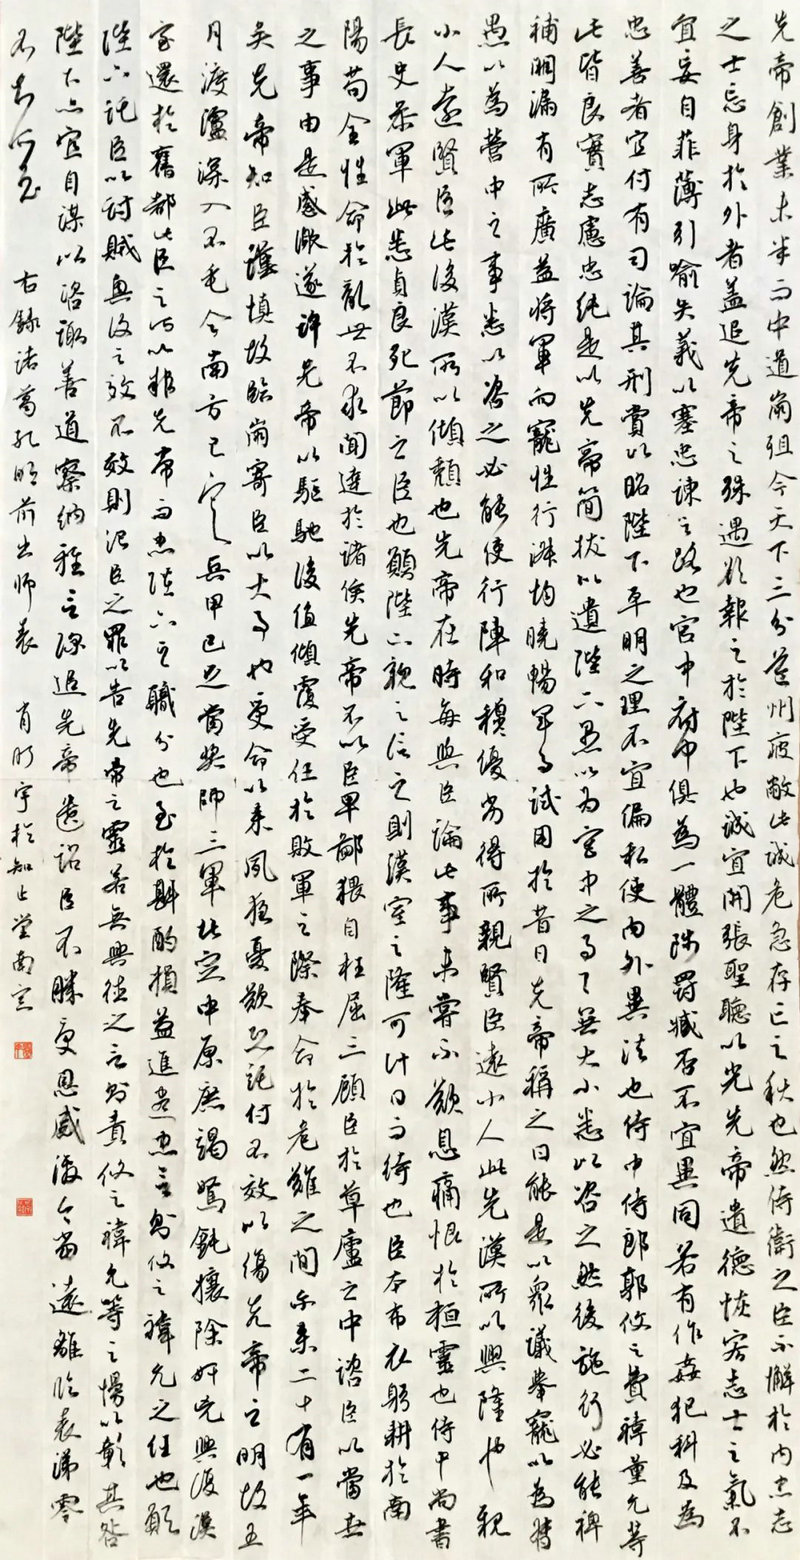 先帝創業未半而中道崩殂今天下三分益州疲敝此誠危急存亡之秋也然侍衛之臣不懈於內忠志
之士忘身於外者蓋追先帝之殊遇欲報之於陛下也誠宜開張聖聽以光先帝遺德恢宏志士之氣不
宜妄自菲薄引喻失義以塞忠諫之路也宮中府中俱為一體陟罰臧否不宜異同若有作姦犯科及為
忠善者宜付有司論其刑賞以昭陛下平明之理不宜偏私使內外異法也侍中侍郎郭攸之費禕董允等
此皆良實志慮忠純是以先帝簡拔以遺陛下愚以為宮中之事事無大小悉以咨之然後施行必能裨
補闕漏有所廣益將軍向寵性行淑均曉暢軍事試用於昔日先帝稱之曰能是以眾議舉寵以為督
愚以為營中之事悉以咨之必能使行陣和穆優劣得所親賢臣遠小人此先漢所以興隆也親
小人遠賢臣此後漢所以傾頹也先帝在時每與臣論此事未嘗不歎息痛恨於桓靈也侍中尚書
長史參軍此悉貞良死節之臣也願陛下親之信之則漢室之隆可計日而待也臣本布衣躬耕於南
陽苟全性命於亂世不求聞達於諸侯先帝不以臣卑鄙猥自枉屈三顧臣於草廬之中諮臣以當世
之事由是感激遂許先帝以驅馳後值傾覆受任於敗軍之際奉命於危難之間爾來二十有一年
矣先帝知臣謹慎故臨崩寄臣以大事也受命以來夙夜憂歎恐託付不效以傷先帝之明故五
月渡瀘深入不毛今南方已定兵甲已足當獎帥三軍北定中原庶竭駑鈍攘除奸兇興復漢
室還於舊都此臣之所以報先帝而忠陛下之職分也至於斟酌損益進盡忠言則攸之禕允之任也願
陛下託臣以討賊興復之效不效則治臣之罪以告先帝之靈若無興德之言則責攸之禕允等之慢以彰其咎
陛下亦宜自謀以諮諏善道察納雅言深追先帝遺詔臣不勝受恩感激今當遠離臨表涕零
不知所云 右錄諸葛孔明前出師表 肖明宇於知止堂南窗